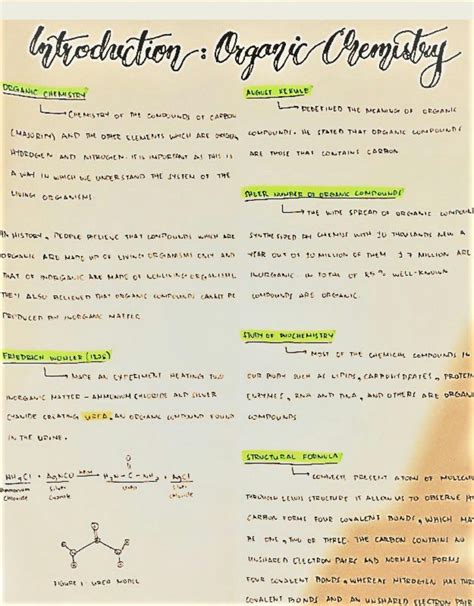 Introduction: Organic Chemistry
ORGANIC CHEMISTRY
CHEMISTRY OF THE COMPOUNDS OF CARBON
(MAJORITY) AND THE OTHER ELEMENTS WHICH ARE OXYGEN,
HYDROGEN AND NITROGEN. IT IS IMPORTANT AS THIS IS
A WAY IN WHICH WE UNDERSTAND THE SYSTEM OF THE
LIVING ORGANISMS.
IN HISTORY, PEOPLE BELIEVE THAT COMPOUNDS WHICH ARE
ORGANIC ARE MADE UP OF LIVING ORGANISMS ONLY AND
THAT OF INORGANIC ARE MADE OF NONLIVING ORGANISMS.
THEY ALSO BELIEVED THAT ORGANIC COMPOUNDS CANNOT BE
PRODUCED BY INORGANIC MATTER.
FRIEDRICH WOHLER (1828)
MADE AN EXPERIMENT HEATING TWO
INORGANIC MATTER - AMMONIUM CHLORIDE AND SILVER
CYANIDE CREATING UREA, AN ORGANIC COMPOUND FOUND
IN THE URINE.
NH4Cl + AgNCO HEAT H2N-C-NH2 + AgCl
O
Ammonium Silver Urea Silver
Chloride Cyanate Chloride
FIGURE 1: UREA MODEL
AUGUST KEKULE
REDEFINED THE MEANING OF ORGANIC
COMPOUNDS. HE STATED THAT ORGANIC COMPOUNDS
ARE THOSE THAT CONTAINS CARBON.
SHEER NUMBER OF ORGANIC COMPOUNDS
THE WIDE SPREAD OF ORGANIC COMPOUND
SYNTHESIZED BY CHEMIST WITH 10 THOUSANDS NEW A
YEAR OUT OF 10 MILLION OF THEM 1.7 MILLION ARE
INORGANIC. IN TOTAL OF 85% WELL-KNOWN
COMPOUNDS ARE ORGANIC.
STUDY OF BIOCHEMISTRY
MOST OF THE CHEMICAL COMPOUNDS IN
OUR BODY SUCH AS LIPIDS, CARBOHYDRATES, PROTEIN
ENZYMES, RNA AND DNA, AND OTHERS ARE ORGANIC
COMPOUNDS
STRUCTURAL FORMULA
COMPLETE PRESENT ATOMS OF MOLECULE
THROUGH LEWIS STRUCTURE IT ALLOW US TO OBSERVE H
CARBON FORMS FOUR COVALENT BONDS, WHICH MAY
BE ONE, TWO OF THREE. THE CARBON CONTAINS NO
UNSHARED ELECTRON PAIRS AND NORMALLY FORMS
FOUR COVALENT BONDS, WHEREAS NITROGEN HAS THREE
COVALENT BONDS AND AN UNSHARED ELECTRON PAIR